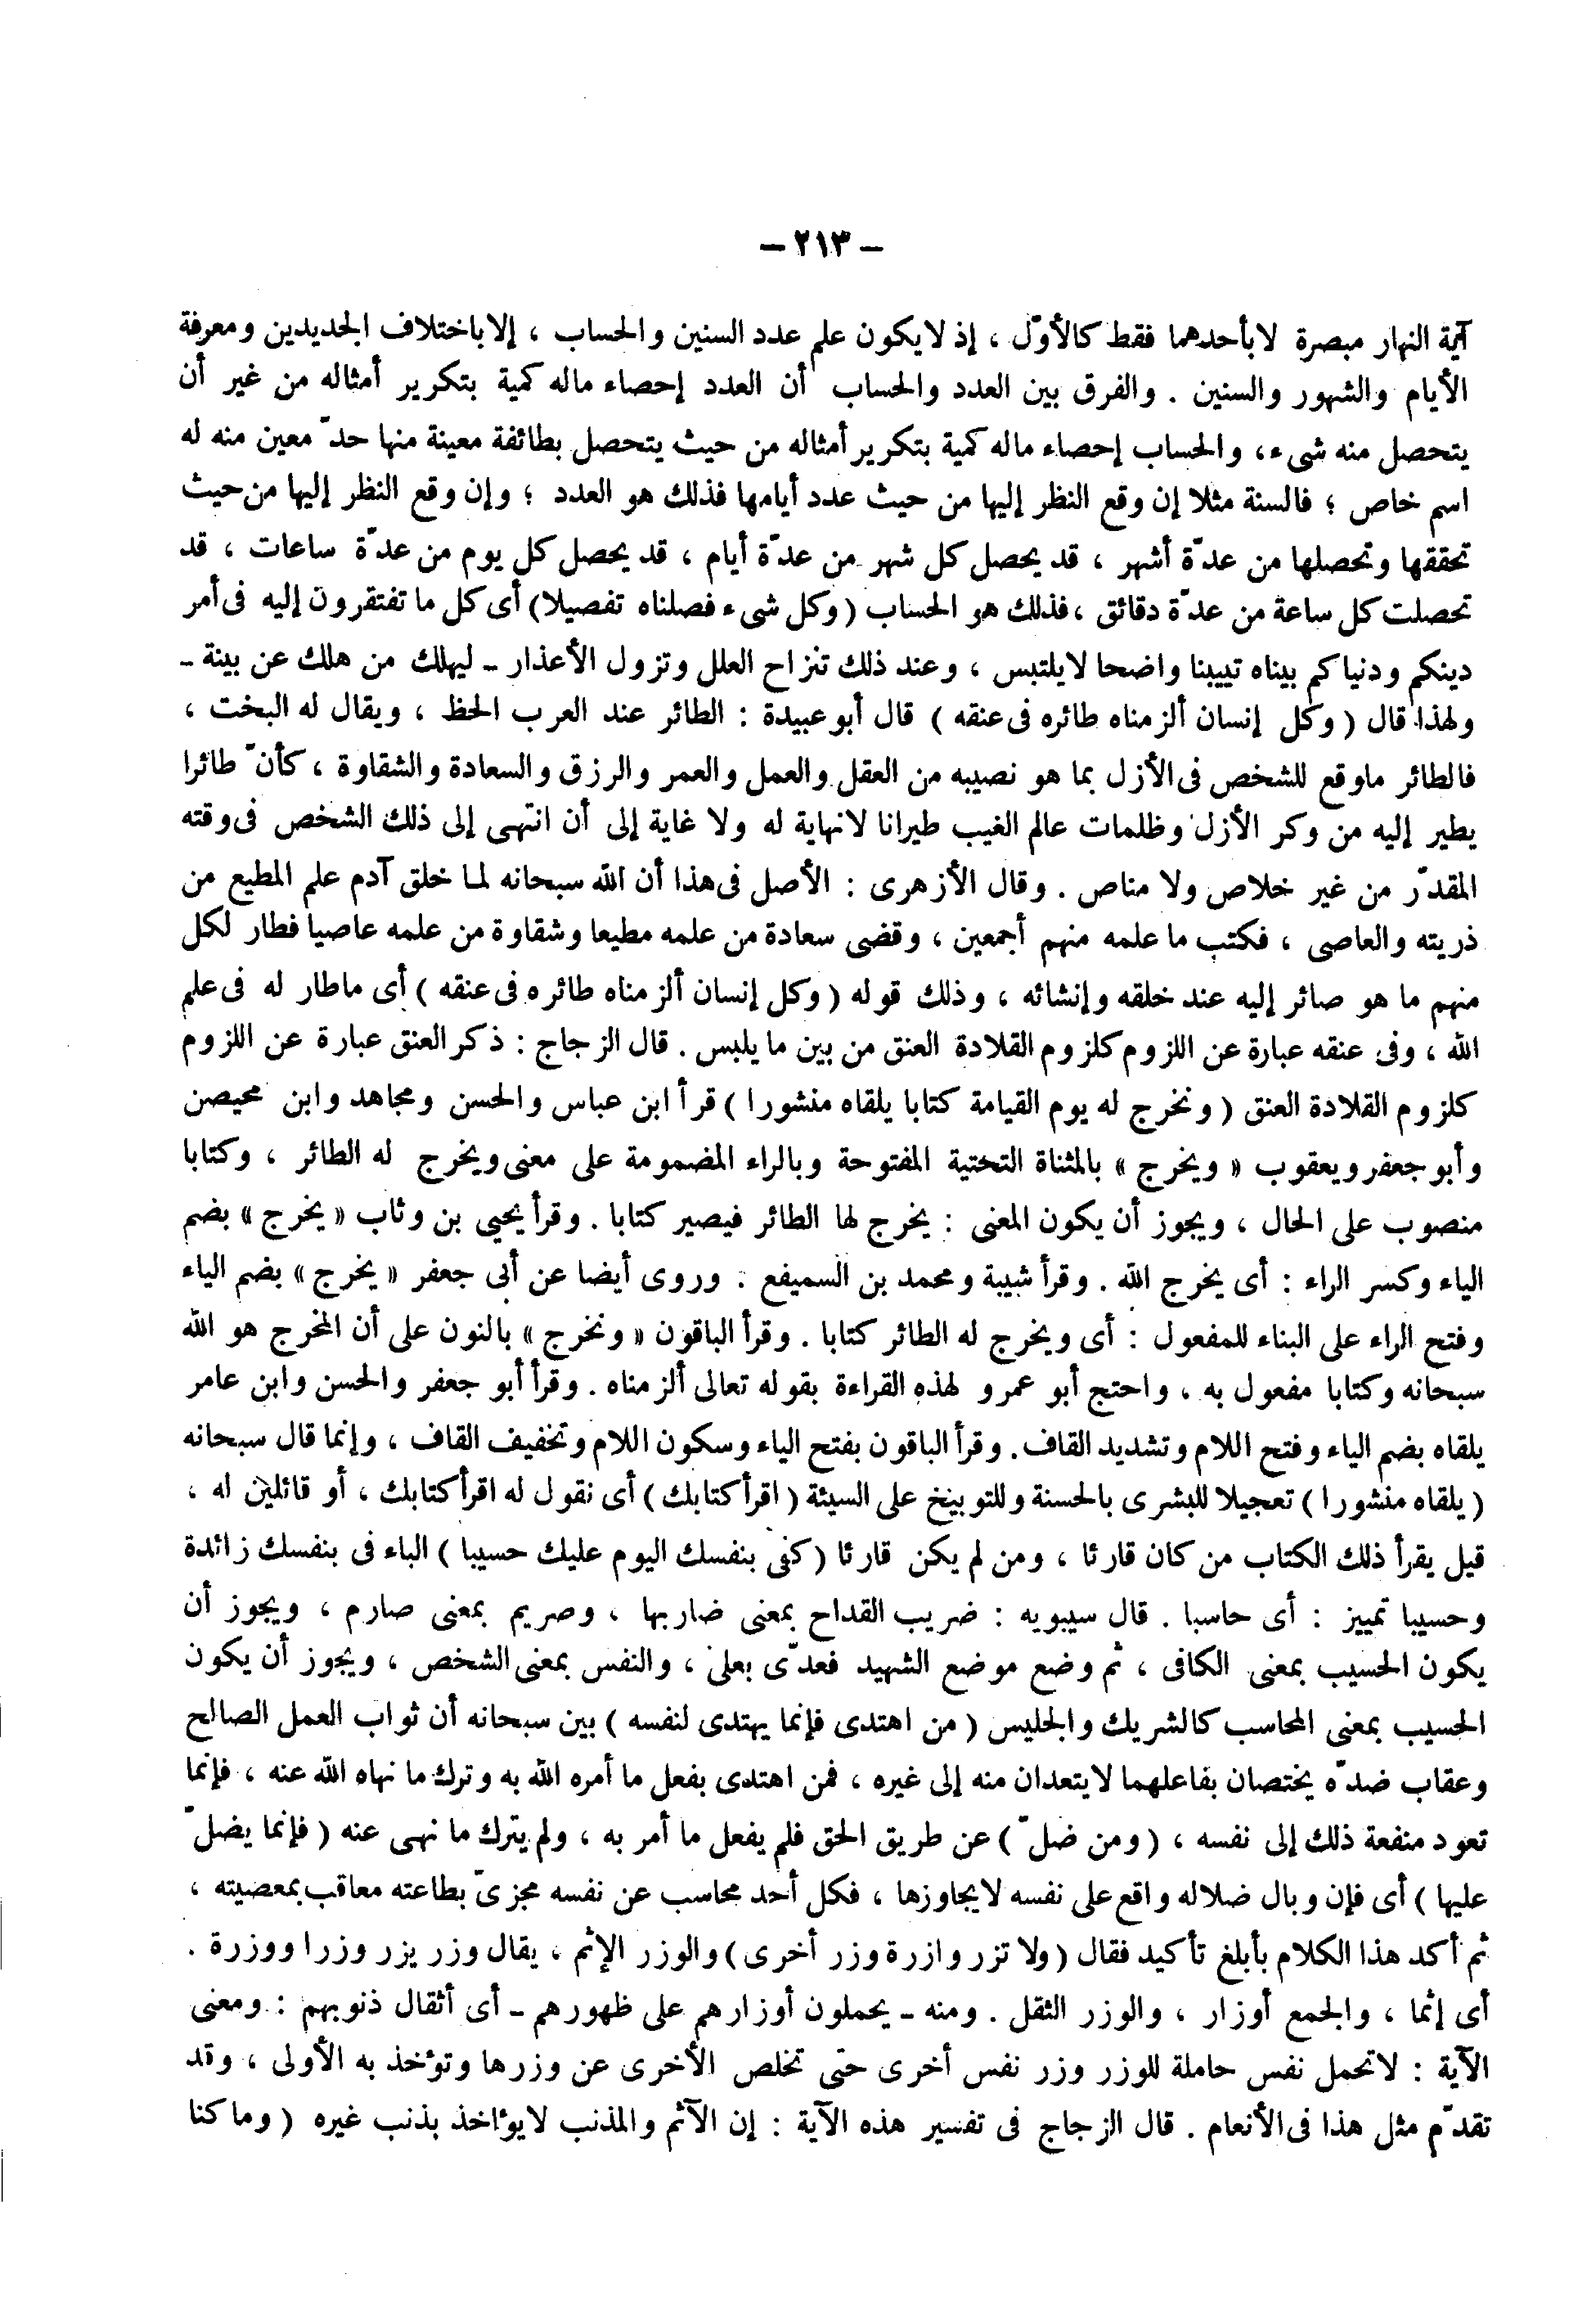 - ٢١٣ -
آية النهار مبصرة لا بأحدهما فقط كالأوّل ، إذ لا يكون علم عدد السنين والحساب ، إلا باختلاف الجديدين ومعرفة
الأيام والشهور والسنين . والفرق بين العدد والحساب أن العدد إحصاء ماله كمية بتكرير أمثاله من غير أن
يتحصل منه شىء ، والحساب إحصاء ماله كمية بتكرير أمثاله من حيث يتحصل بطائفة معينة منها حدّ معين منه له
اسم خاص ؛ فالسنة مثلا إن وقع النظر إليها من حيث عدد أيامها فذلك هو العدد ؛ وإن وقع النظر إليها من حيث
تحققها وتحصلها من عدّة أشهر ، قد يحصل كل شهر من عدّة أيام ، قد يحصل كل يوم من عدّة ساعات ، قد
تحصلت كل ساعة من عدّة دقائق ، فذلك هو الحساب ( وكل شىء فصلناه تفصيلا ) أى كل ما تفتقرون إليه فى أمر
دينكم ودنياكم بيناه تبيينا واضحا لا يلتبس ، وعند ذلك تنزاح العلل وتزول الأعذار - ليهلك من هلك عن بينة -
ولهذا قال ( وكل إنسان ألزمناه طائره فى عنقه ) قال أبو عبيدة : الطائر عند العرب الحظ ، ويقال له البخت ،
فالطائر ما وقع للشخص فى الأزل بما هو نصيبه من العقل والعمل والعمر والرزق والسعادة والشقاوة ، كأنّ طائرا
يطير إليه من وكر الأزل وظلمات عالم الغيب طيرانا لا نهاية له ولا غاية إلى أن انتهى إلى ذلك الشخص فى وقته
المقدّر من غير خلاص ولا مناص . وقال الأزهرى : الأصل فى هذا أن الله سبحانه لما خلق آدم علم المطيع من
ذريته والعاصى ، فكتب ما علمه منهم أجمعين ، وقضى سعادة من علمه مطيعا وشقاوة من علمه عاصيا فطار لكل
منهم ما هو صائر إليه عند خلقه وإنشائه ، وذلك قوله ( وكل إنسان ألزمناه طائره فى عنقه ) أى ما طار له فى علم
الله ، وفى عنقه عبارة عن اللزوم كلزوم القلادة العنق من بين ما يلبس . قال الزجاج : ذكر العنق عبارة عن اللزوم
كلزوم القلادة العنق ( ونخرج له يوم القيامة كتابا يلقاه منشورا ) قرأ ابن عباس والحسن ومجاهد وابن محيصن
وأبو جعفر ويعقوب « ويخرج » بالمثناة التحتية المفتوحة وبالراء المضمومة على معنى ويخرج له الطائر ، وكتابا
منصوب على الحال ، ويجوز أن يكون المعنى : يخرج لها الطائر فيصير كتابا . وقرأ يحيى بن وثاب « يخرج » بضم
الياء وكسر الراء : أى يخرج الله . وقرأ شيبة ومحمد بن السميفع : وروى أيضا عن أبى جعفر « يخرج » بضم الياء
وفتح الراء على البناء للمفعول : أى ويخرج له الطائر كتابا . وقرأ الباقون « ونخرج » بالنون على أن المخرج هو الله
سبحانه وكتابا مفعول به ، واحتج أبو عمرو لهذه القراءة بقوله تعالى ألزمناه . وقرأ أبو جعفر والحسن وابن عامر
يلقاه بضم الياء وفتح اللام وتشديد القاف . وقرأ الباقون بفتح الياء وسكون اللام وتخفيف القاف ، وإنما قال سبحانه
( يلقاه منشورا ) تعجيلا للبشرى بالحسنة وللتوبيخ على السيئة ( اقرأ كتابك ) أى نقول له اقرأ كتابك ، أو قائلين له ،
قيل يقرأ ذلك الكتاب من كان قارئا ، ومن لم يكن قارئا ( كفى بنفسك اليوم عليك حسيبا ) الباء فى بنفسك زائدة
وحسيبا تمييز : أى حاسبا . قال سيبويه : ضريب القداح بمعنى ضاربها ، وصريم بمعنى صارم ، ويجوز أن
يكون الحسيب بمعنى الكافى ، ثم وضع موضع الشهيد فعدّى بعلى ، والنفس بمعنى الشخص ، ويجوز أن يكون
الحسيب بمعنى المحاسب كالشريك والجليس ( من اهتدى فإنما يهتدى لنفسه ) بين سبحانه أن ثواب العمل الصالح
وعقاب ضدّه يختصان بفاعلهما لا يتعدان منه إلى غيره ، فمن اهتدى بفعل ما أمره الله به وترك ما نهاه الله عنه ، فإنما
تعود منفعة ذلك إلى نفسه ، ( ومن ضلّ ) عن طريق الحق فلم يفعل ما أمر به ، ولم يترك ما نهى عنه ( فإنما يضلّ
عليها ) أى فإن وبال ضلاله واقع على نفسه لا يجاوزها ، فكل أحد محاسب عن نفسه مجزىّ بطاعته معاقب بمعصيته ،
ثم أكد هذا الكلام بأبلغ تأكيد فقال ( ولا تزر وازرة وزر أخرى ) والوزر الإثم ، يقال وزر يزر وزرا ووزرة .
أى إثما ، والجمع أوزار ، والوزر الثقل . ومنه - يحملون أوزارهم على ظهورهم - أى أثقال ذنوبهم : ومعنى
الآية : لا تحمل نفس حاملة للوزر وزر نفس أخرى حتى تخلص الأخرى عن وزرها وتؤخذ به الأولى ، وقد
تقدّم مثل هذا فى الأنعام . قال الزجاج فى تفسير هذه الآية : إن الآثم والمذنب لا يؤاخذ بذنب غيره ( وما كنا